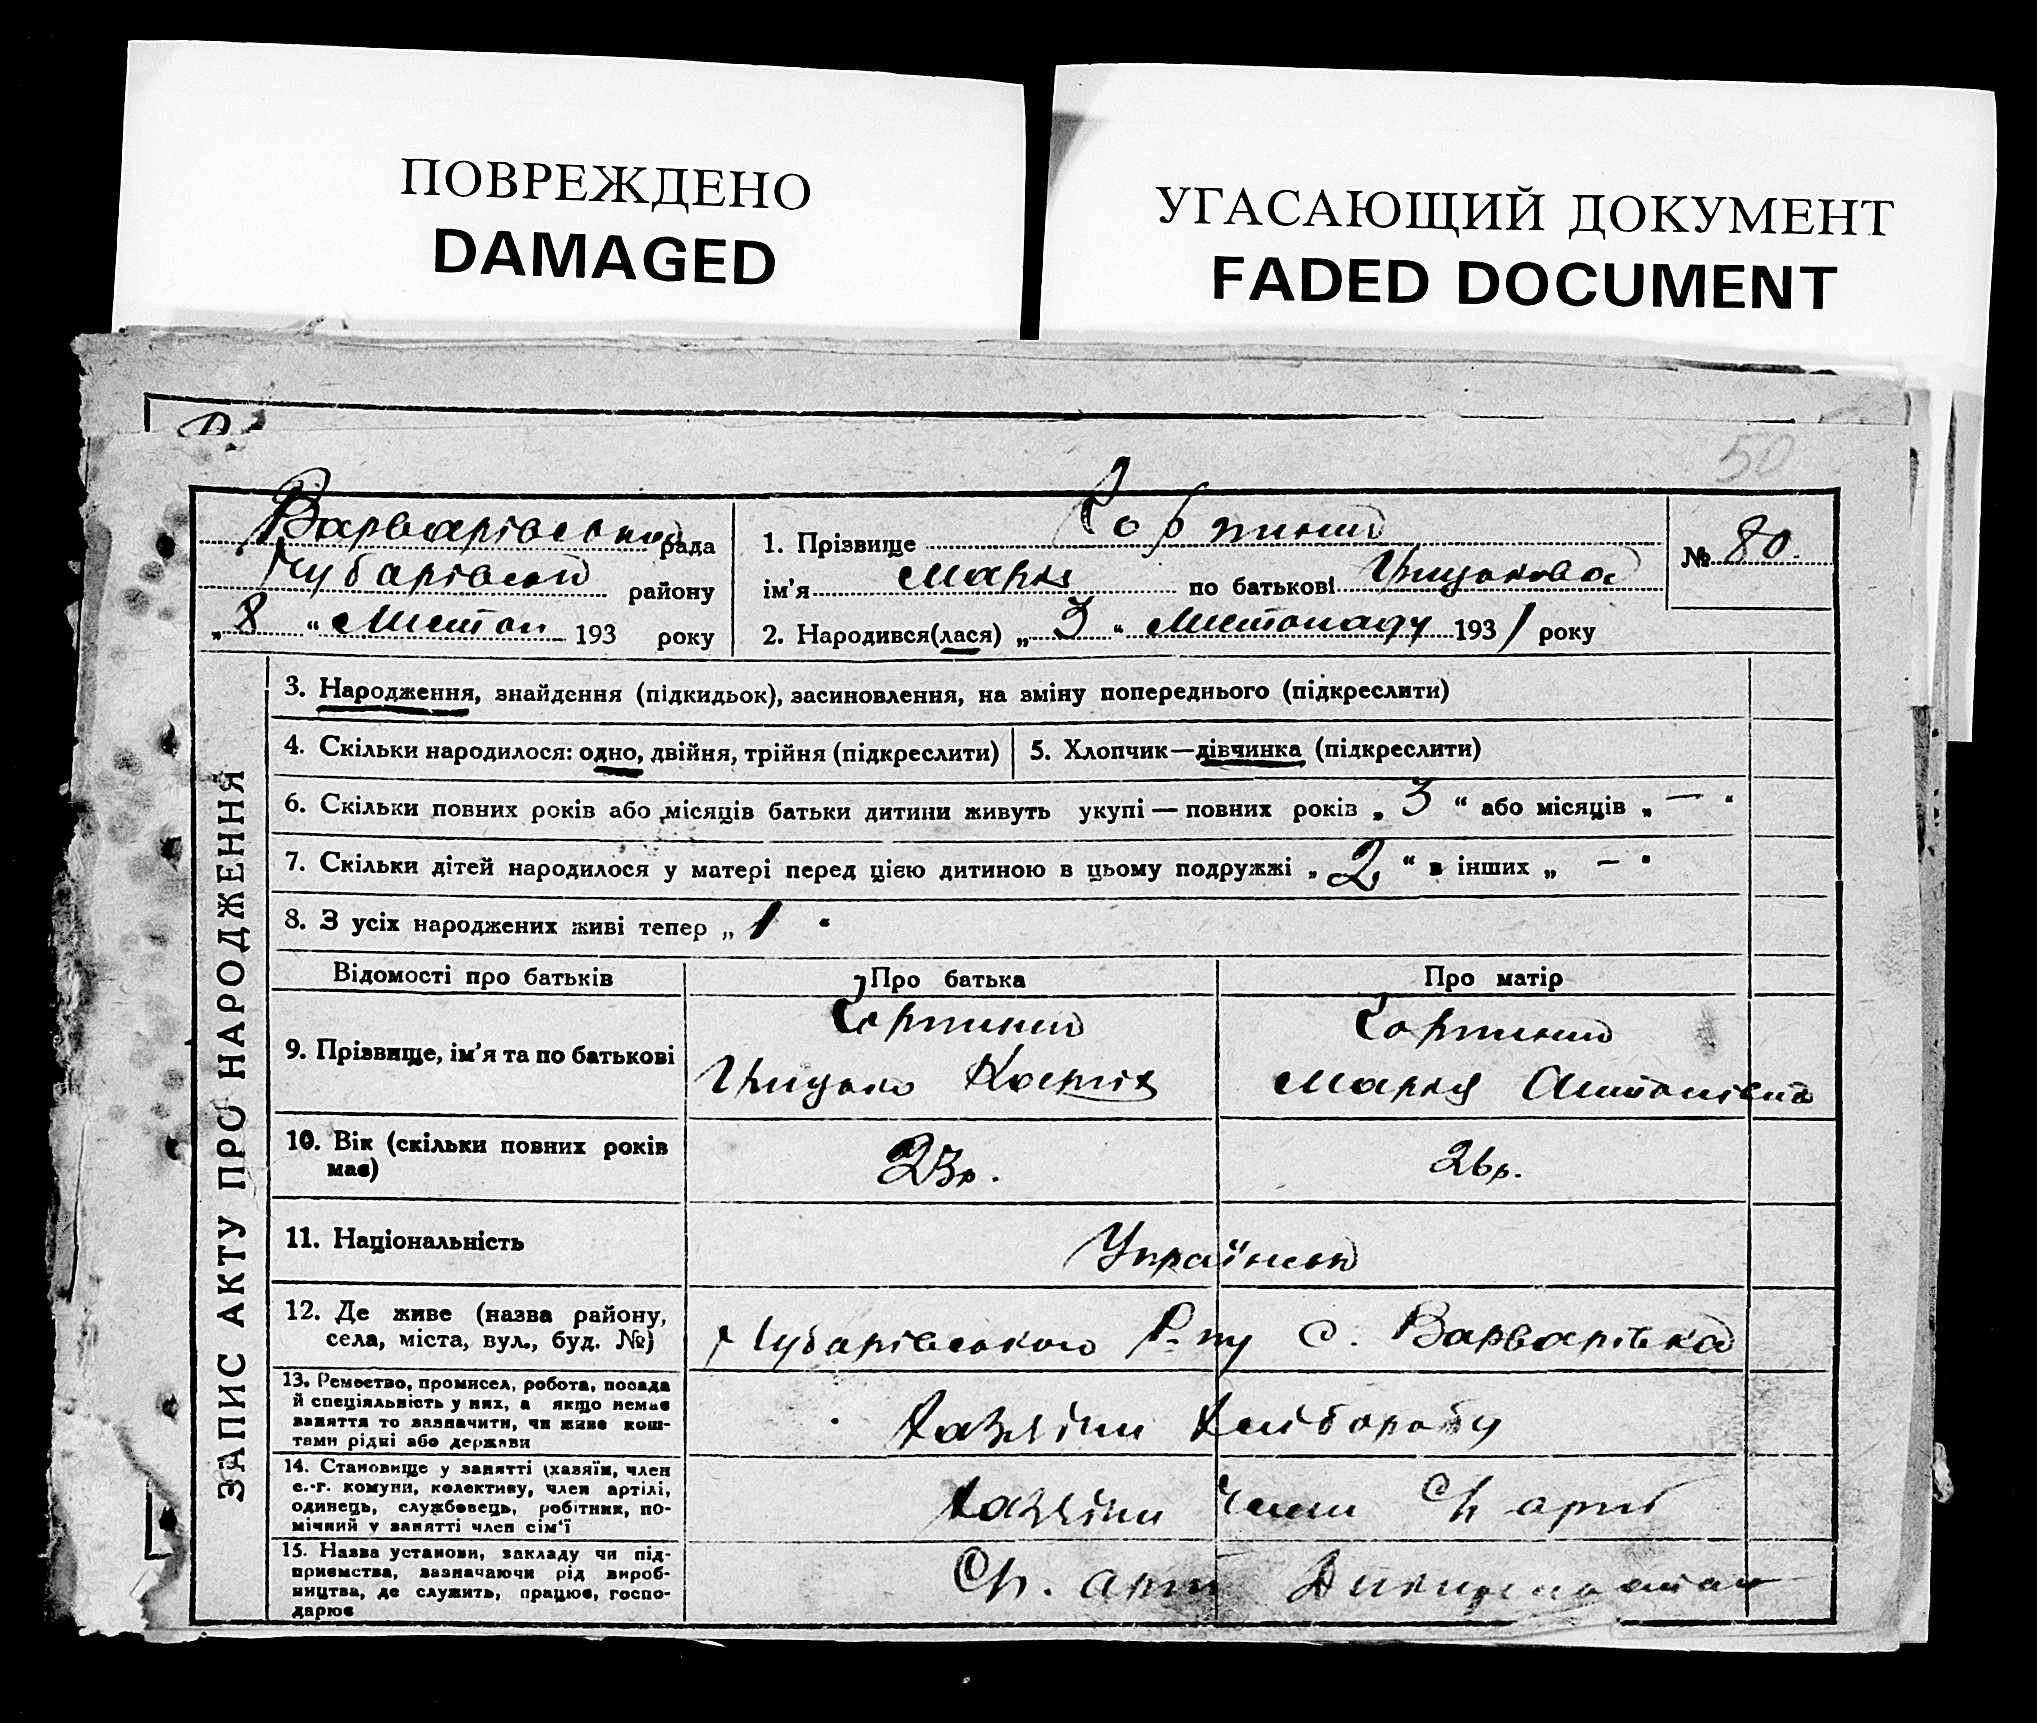 ПОВРЕЖДЕНО
DAMAGED
УГАСАЮЩИЙ ДОКУМЕНТ
FADED DOCUMENT
50
Варварівська рада
Чубарівський району
„ 8 “ Листоп 193 року
1. Прізвище
ім'я Марія по батькові
2. Народився(лася) „ 3 “ Листопаду 1931 року
№ 80.
ЗАПИС АКТУ ПРО НАРОДЖЕННЯ
3. Народження, знайдення (підкидьок), засиновлення, на зміну попереднього (підкреслити)
4. Скільки народилося: одно, двійня, трійня (підкреслити)
5. Хлопчик—дівчинка (підкреслити)
6. Скільки повних років або місяців батьки дитини живуть укупі — повних років „ 3 “ або місяців „ — “
7. Скільки дітей народилося у матері перед цією дитиною в цьому подружжі „ 2 “ в інших „ — “
8. З усіх народжених живі тепер „ 1 “
Відомості про батьків
Про батька
Про матір
9. Прізвище, ім'я та по батькові
Марія Антонівна
10. Вік (скільки повних років
має)
23р.
26р.
11. Національність
12. Де живе (назва району,
села, міста, вул., буд. №)
Чубарівського Р-ну с. Варварівка
13. Ремество, промисел, робота, посада
й спеціяльність у них, а якщо немає
заняття то зазначити, чи живе кош-
тами рідні або держави
14. Становище у занятті (хазяїн, член
с.-г. комуни, колективу, член артілі,
одинець, службовець, робітник, по-
мічний у занятті член сім'ї
член арт
15. Назва установи, закладу чи під-
приємства, зазначаючи рід вироб-
ництва, де служить, працює, госпо-
дарює
арт